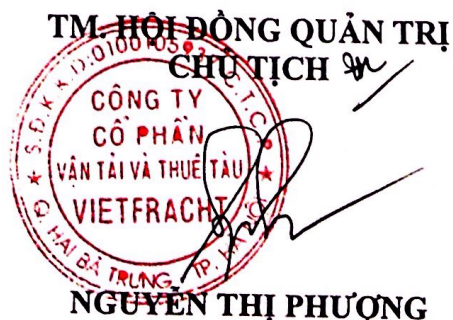 TM. HỘI ĐỒNG QUẢN TRỊ
CHỦ TỊCH
CÔNG TY
CỔ PHẦN
VẬN TẢI VÀ THUÊ TÀU
VIETFRACHT
Q. HAI BÀ TRƯNG - TP. HÀ NỘI
NGUYỄN THỊ PHƯƠNG